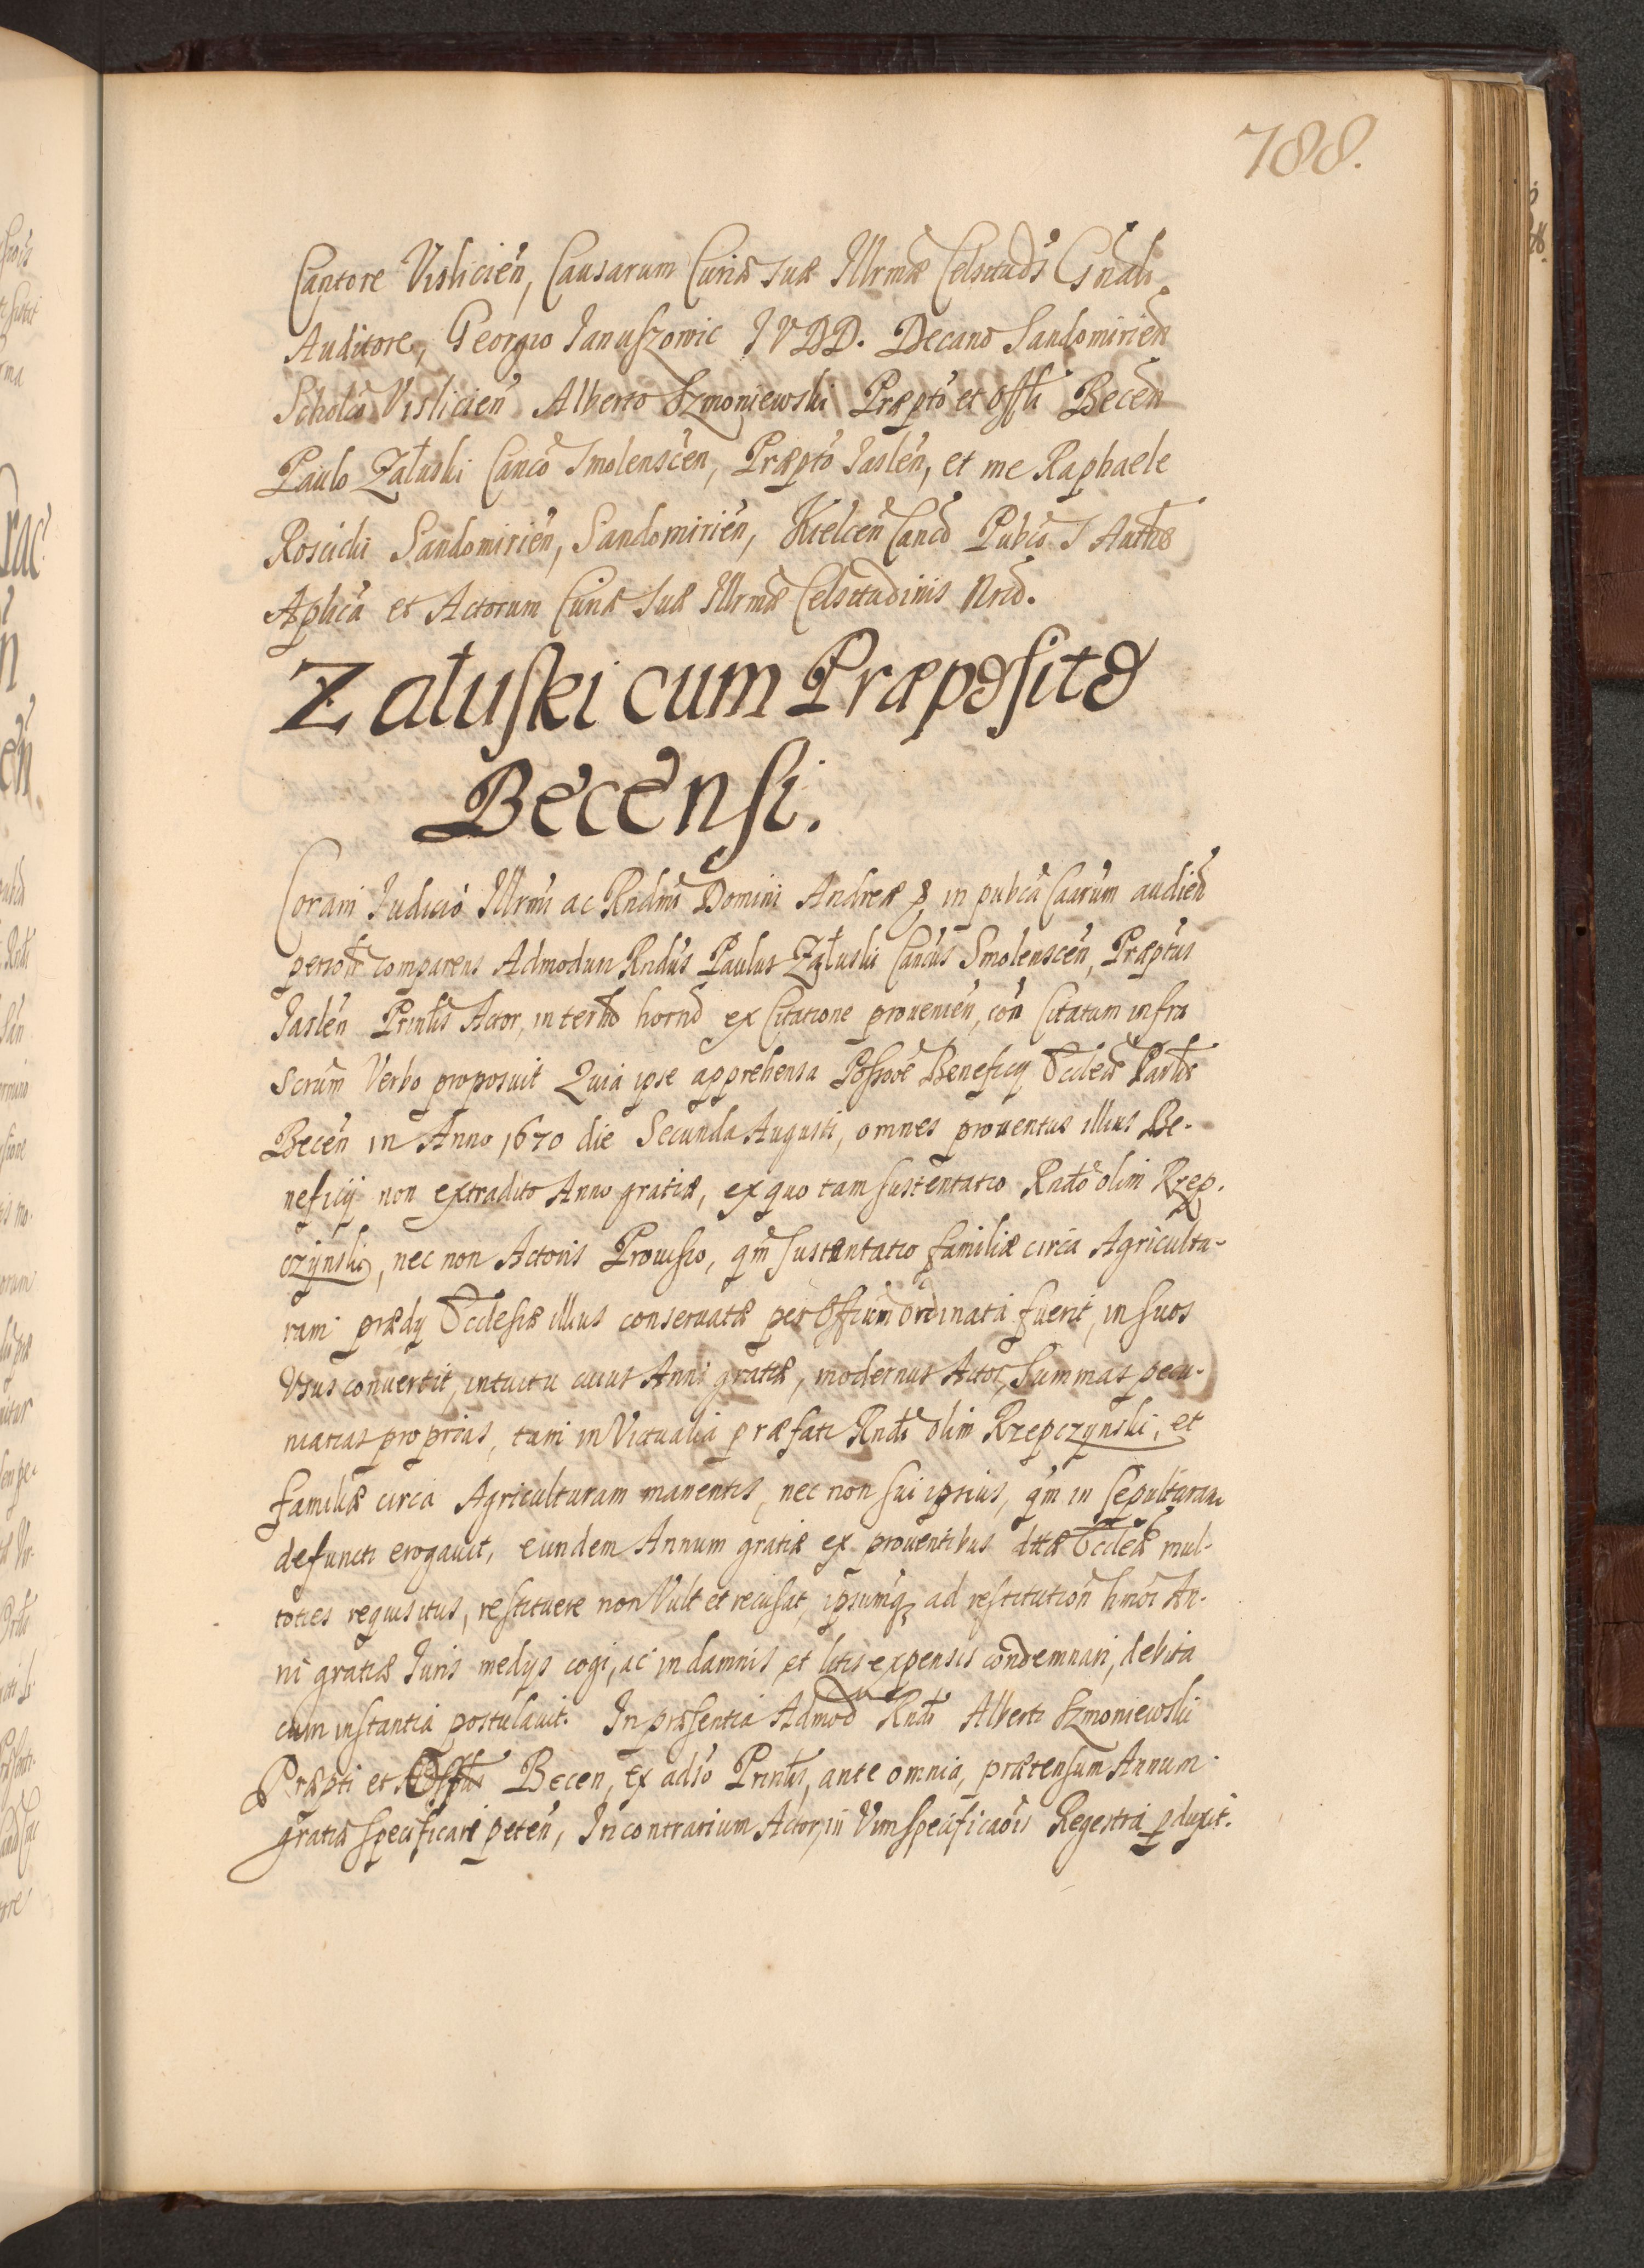 788.
Cantore Vislicien, Causarum Curiæ suæ Illrmæ Celsitudis Gnali
Auditore, Georgio Januszowic JVDD. Decano Sandomirien
Scholco Vislicien Alberto Szmoniewski Præpto et Offli Becen
Paulo Załuski Canco Smolenscen, Præpto Jaslen, et me Raphaele
Roscicki Sandomirien, Sandomirien, Kielcen Canco Pubco S Authe
Aplica et Actorum Curiæ suæ Illrmæ Celsitudinis Nrio.
Załuski cum Præposito
Becensi.
Coram Judicio Illrmi ac Rndmi Domini Andreæ in pubca Caarum audien
personlr comparens Admodum Rndus Paulus Załuski Cancus Smolenscen, Præptus
Jaslen Prinlis Actor, in termo hornо ex Citatione prouenien, con Citatum infra
scrum Verbo proposuit Quia ipse apprehensa Possoe Beneficij Eccleæ Parlis
Becen in Anno 1670 die Secunda Augusti, omnes prouentus illius Be-
neficij non extradito Anno gratiæ, ex quo tam sustentatio Rndo olim Rzep-
czynski, nec non Actoris Prouisio, qm sustentatio familiæ circa Agricultu-
ram prædij Ecclesiæ illius conseruatæ per Offium ordinata fuerit, in suos
Vsus conuertit, intuitu cuius Anni gratiæ, modernus Actor, Summas pecu-
niarias proprias, tam in Victualia præfati Rndi olim Rzepczynski, et
familiæ circa Agriculturam manentis, nec non sui ipsius, qm in sepulturam
defuncti erogauit, eundem Annum gratiæ ex prouentibus dttæ Eccleæ mul-
toties requisitus, restituere non Vult et recusat, ipsumq ad restitution hmoi An-
ni gratiæ Juris medijs cogi, ac in damnis et litis expensis condemnari, debita
cum instantia postulauit. In præsentia Admod Rndi Alberti Szmoniewski
Præpti et Offlis Becen, ex adso Prinlis, ante omnia, prætensum Annum
gratiæ specificari peten, In contrarium Actor, in Vim specificaois Regestra pduxit.